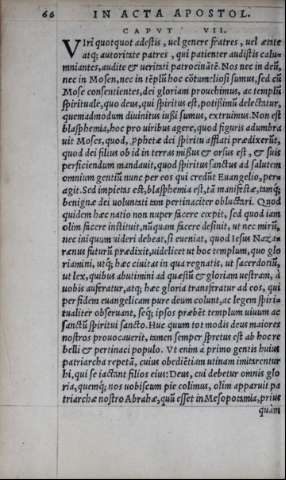 66 IN ACTA APOSTOL.
CAPVT VII.
VIri quotquot adestis, uel genere fratres, uel ætate
atq; autoritate patres, qui patienter audistis calu-
mniantes, audite & ueritati patrocinãtē. Nos nec in deũ,
nec in Mosen, nec in tẽplũ hoc cõtumeliosi sumus, sed cũ
Mose consentientes, dei gloriam prouehimus, ac templũ
spirituale, quo deus, qui spiritus est, potissimũ delectatur,
quemadmodum diuinitus iussi sumus, extruimus. Non est
blasphemia, hoc pro uiribus agere, quod figuris adumbra
uit Moses, quod, pphetæ dei spiritu afflati prædixerũt,
quod dei filius ob id in terras missus & orsus est, & suis
perficiendum mandauit, quod spiritus sanctus ad salutem
omnium gentiũ nunc per eos qui credũt Euangelio, per-
agit. Sed impietas est, blasphemia est, tã manifestæ, tamq;
benignæ dei uoluntati tam pertinaciter obluctari. Quod
quidem hæc natio non nuper facere cœpit, sed quod iam
olim facere instituit, nũquam facere desinit, ut nec mirũ,
nec iniquum uideri debeat, si eueniat, quod Iesus Nazа-
renus futurũ prædixit, uidelicet ut hoc templum, quo glo
riamini, utq; hæc ciuitas in qua regnatis, ut sacerdotiũ,
ut lex, quibus abutimini ad quæstũ & gloriam uestram, à
uobis auferatur, atq; hæc gloria transferatur ad eos, qui
per fidem euangelicam pure deum colunt, ac legem spiri-
tualiter obseruant, seq; ipsos præbẽt templum uiuum ac
sanctũ spiritui sancto. Huc quum tot modis deus maiores
nostros prouocauerit, tamen semper spretus est ab hoc re
belli & pertinaci populo. Vt enim à primo gentis huius
patriarcha repetã, cuius obediẽtiam utinam imitarentur
hi, qui se iactant filios eius: Deus, cui debetur omnis glo
ria, quemq; nos uobiscum pie colimus, olim apparuit pa
triarchæ nostro Abrahæ, quũ esset in Mesopotamia, prius
quam